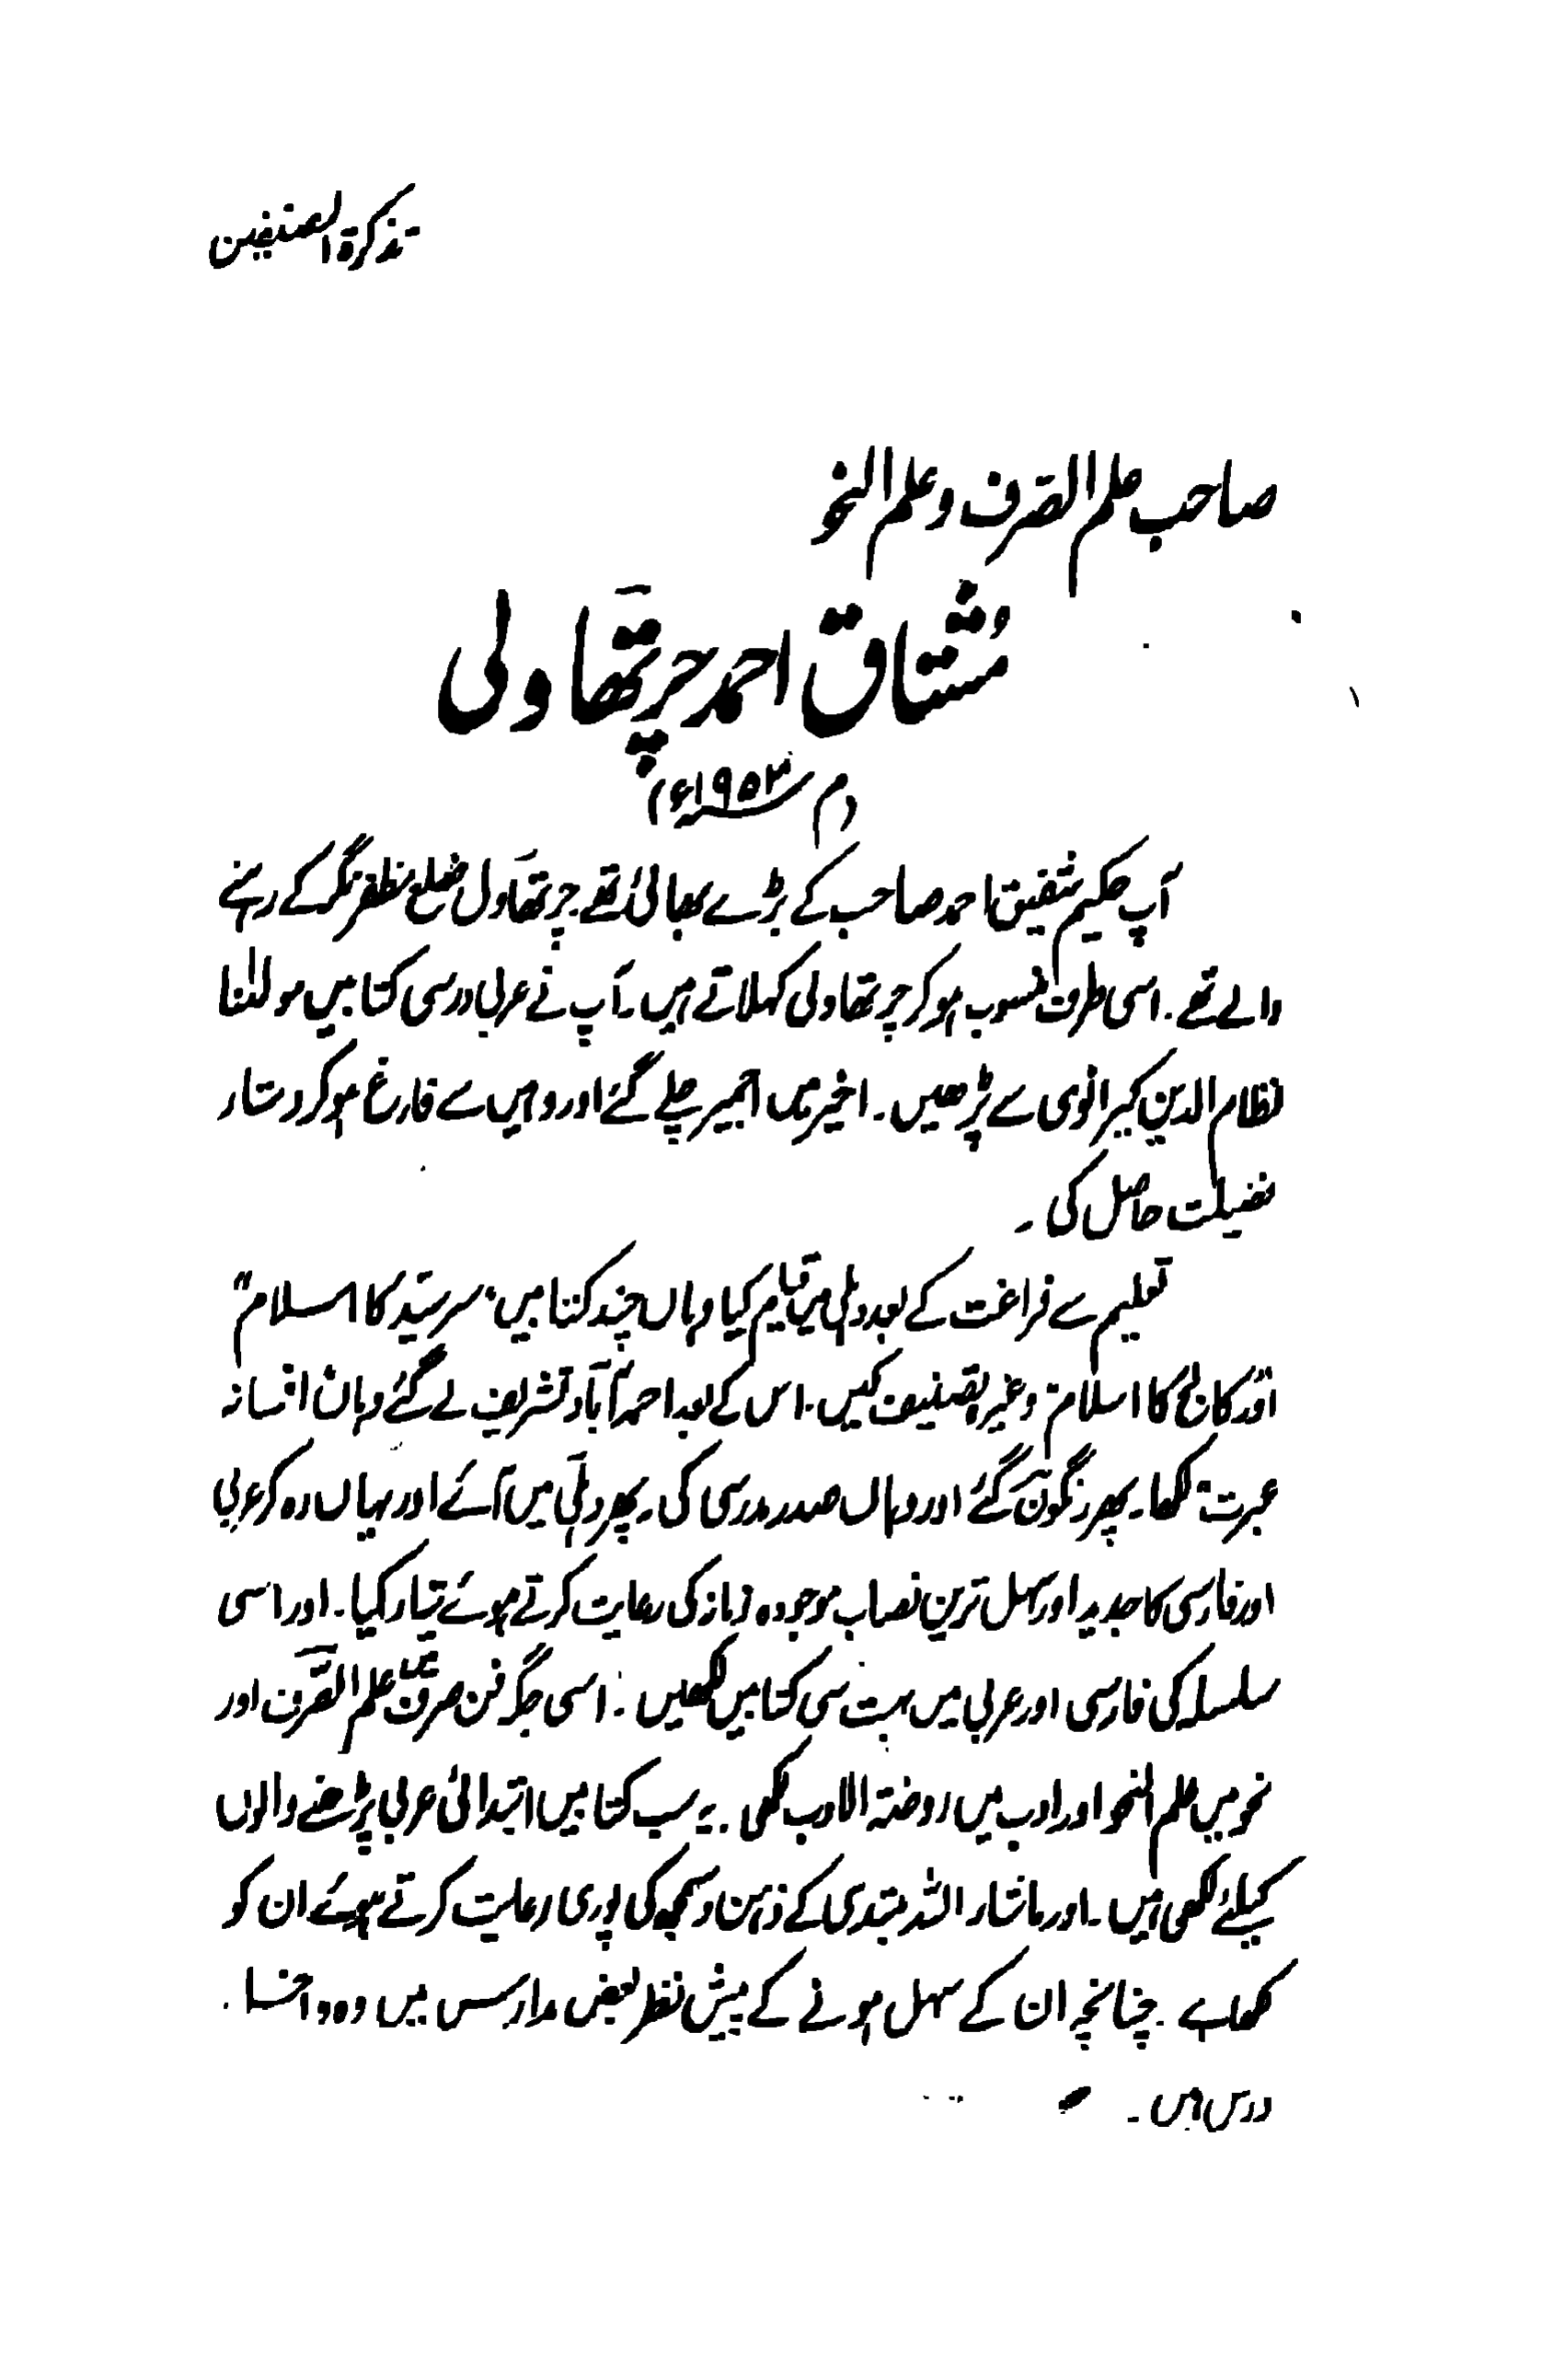 تذکرۃ المصنفین
صاحب علم الصرف و علم النحو
مُشتاق احمد چرتھاولی
(م ۱۹۵۲ء)
آپ حکیم شفیق احمد صاحب کے بڑے بھائی تھے۔ چرتھاول ضلع مظفر نگر کے رہنے
والے تھے۔ اسی طرف منسوب ہوکر چرتھاولی کہلاتے ہیں۔ آپ نے عربی درسی کتابیں مولٰنا
نظام الدین کیرانوی سے پڑھیں۔ اخیر میں اجمیر چلے گئے اور وہیں سے فارغ ہوکر دستار
فضیلت حاصل کی۔
تعلیم سے فراغت کے بعد دہلی میں قیام کیا وہاں چند کتابیں "سرسیّد کا اسلام"
اور "کالج کا اسلام" وغیرہ تصنیف کیں۔ اس کے بعد احمد آباد تشریف لے گئے وہاں "افسانہ
عبرت" لکھا۔ پھر رنگون گئے اور وہاں صدر مدرسی کی۔ پھر دہلی میں آئے اور یہاں رہ کر عربی
اور فارسی کا جدید اور سہل ترین نصاب موجودہ زمانہ کی رعایت کرتے ہوئے تیار کیا۔ اور اسی
سلسلہ کی فارسی اور عربی میں بہت سی کتابیں لکھیں۔ اسی جگہ فن صرف میں علم الصرف اور
نحو میں علم النحو اور ادب میں روضۃ الادب لکھی۔ یہ سب کتابیں ابتدائی عربی پڑھنے والوں
کیلئے لکھی ہیں۔ اور ماشاء اللہ مبتدی کے ذہن و سمجھ کی پوری رعایت کرتے ہوئے ان کو
لکھا ہے۔ چنانچہ ان کے سہل ہونے کے پیش نظر بعض مدارس میں وہ داخل
درس ہیں۔